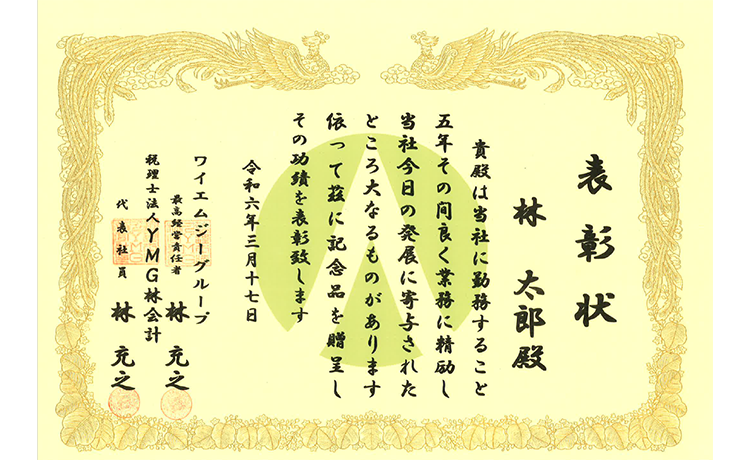 表彰状
林 太郎殿
貴殿は当社に勤務すること
五年その間良く業務に精励し
当社今日の発展に寄与された
ところ大なるものがあります
依って茲に記念品を贈呈し
その功績を表彰致します
令和六年三月十七日
ワイエムジーグループ
最高経営責任者 林 充之
税理士法人YMG林会計
代表社員 林 充之